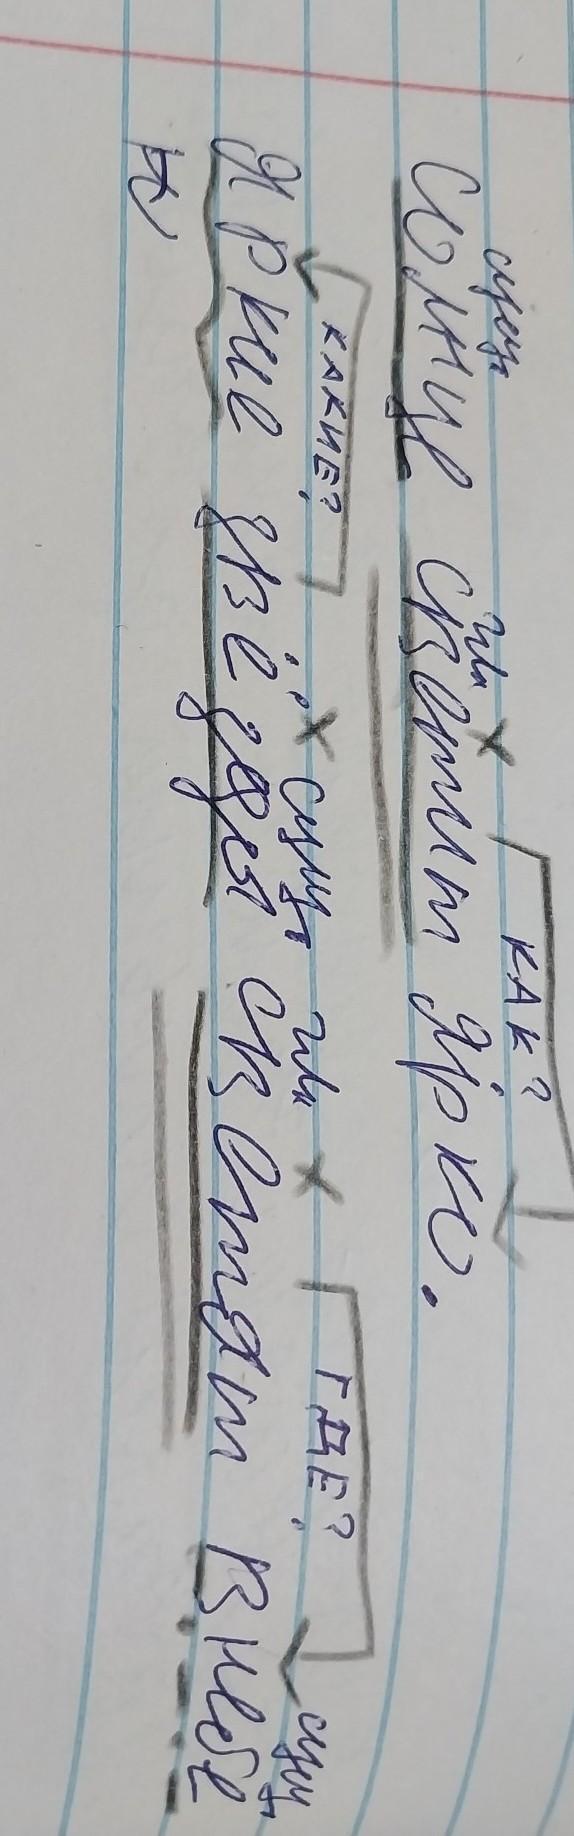 сущ гл КАК?
Солнце светит ярко.
КАКИЕ? сущ гл ГДЕ? сущ
Яркие звёзды светят в небе